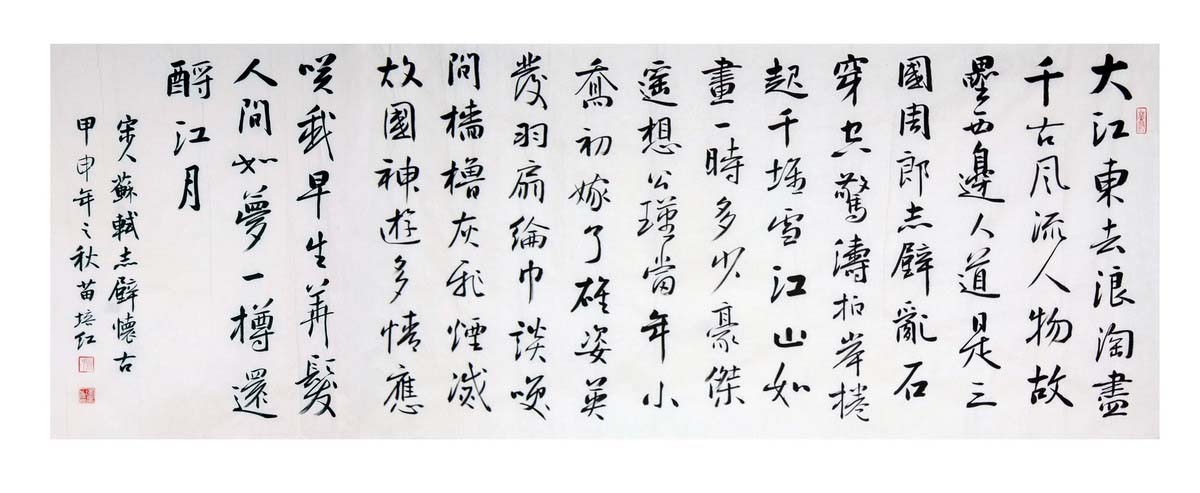 大江東去浪淘盡
千古風流人物故
壘西邊人道是三
國周郎赤壁亂石
穿空驚濤拍岸捲
起千堆雪江山如
畫一時多少豪傑
遙想公瑾當年小
喬初嫁了雄姿英
發羽扇綸巾談笑
間檣櫓灰飛煙滅
故國神遊多情應
笑我早生華髮
人間如夢一樽還
酹江月
宋人蘇軾赤壁懷古
甲申年之秋苗培紅